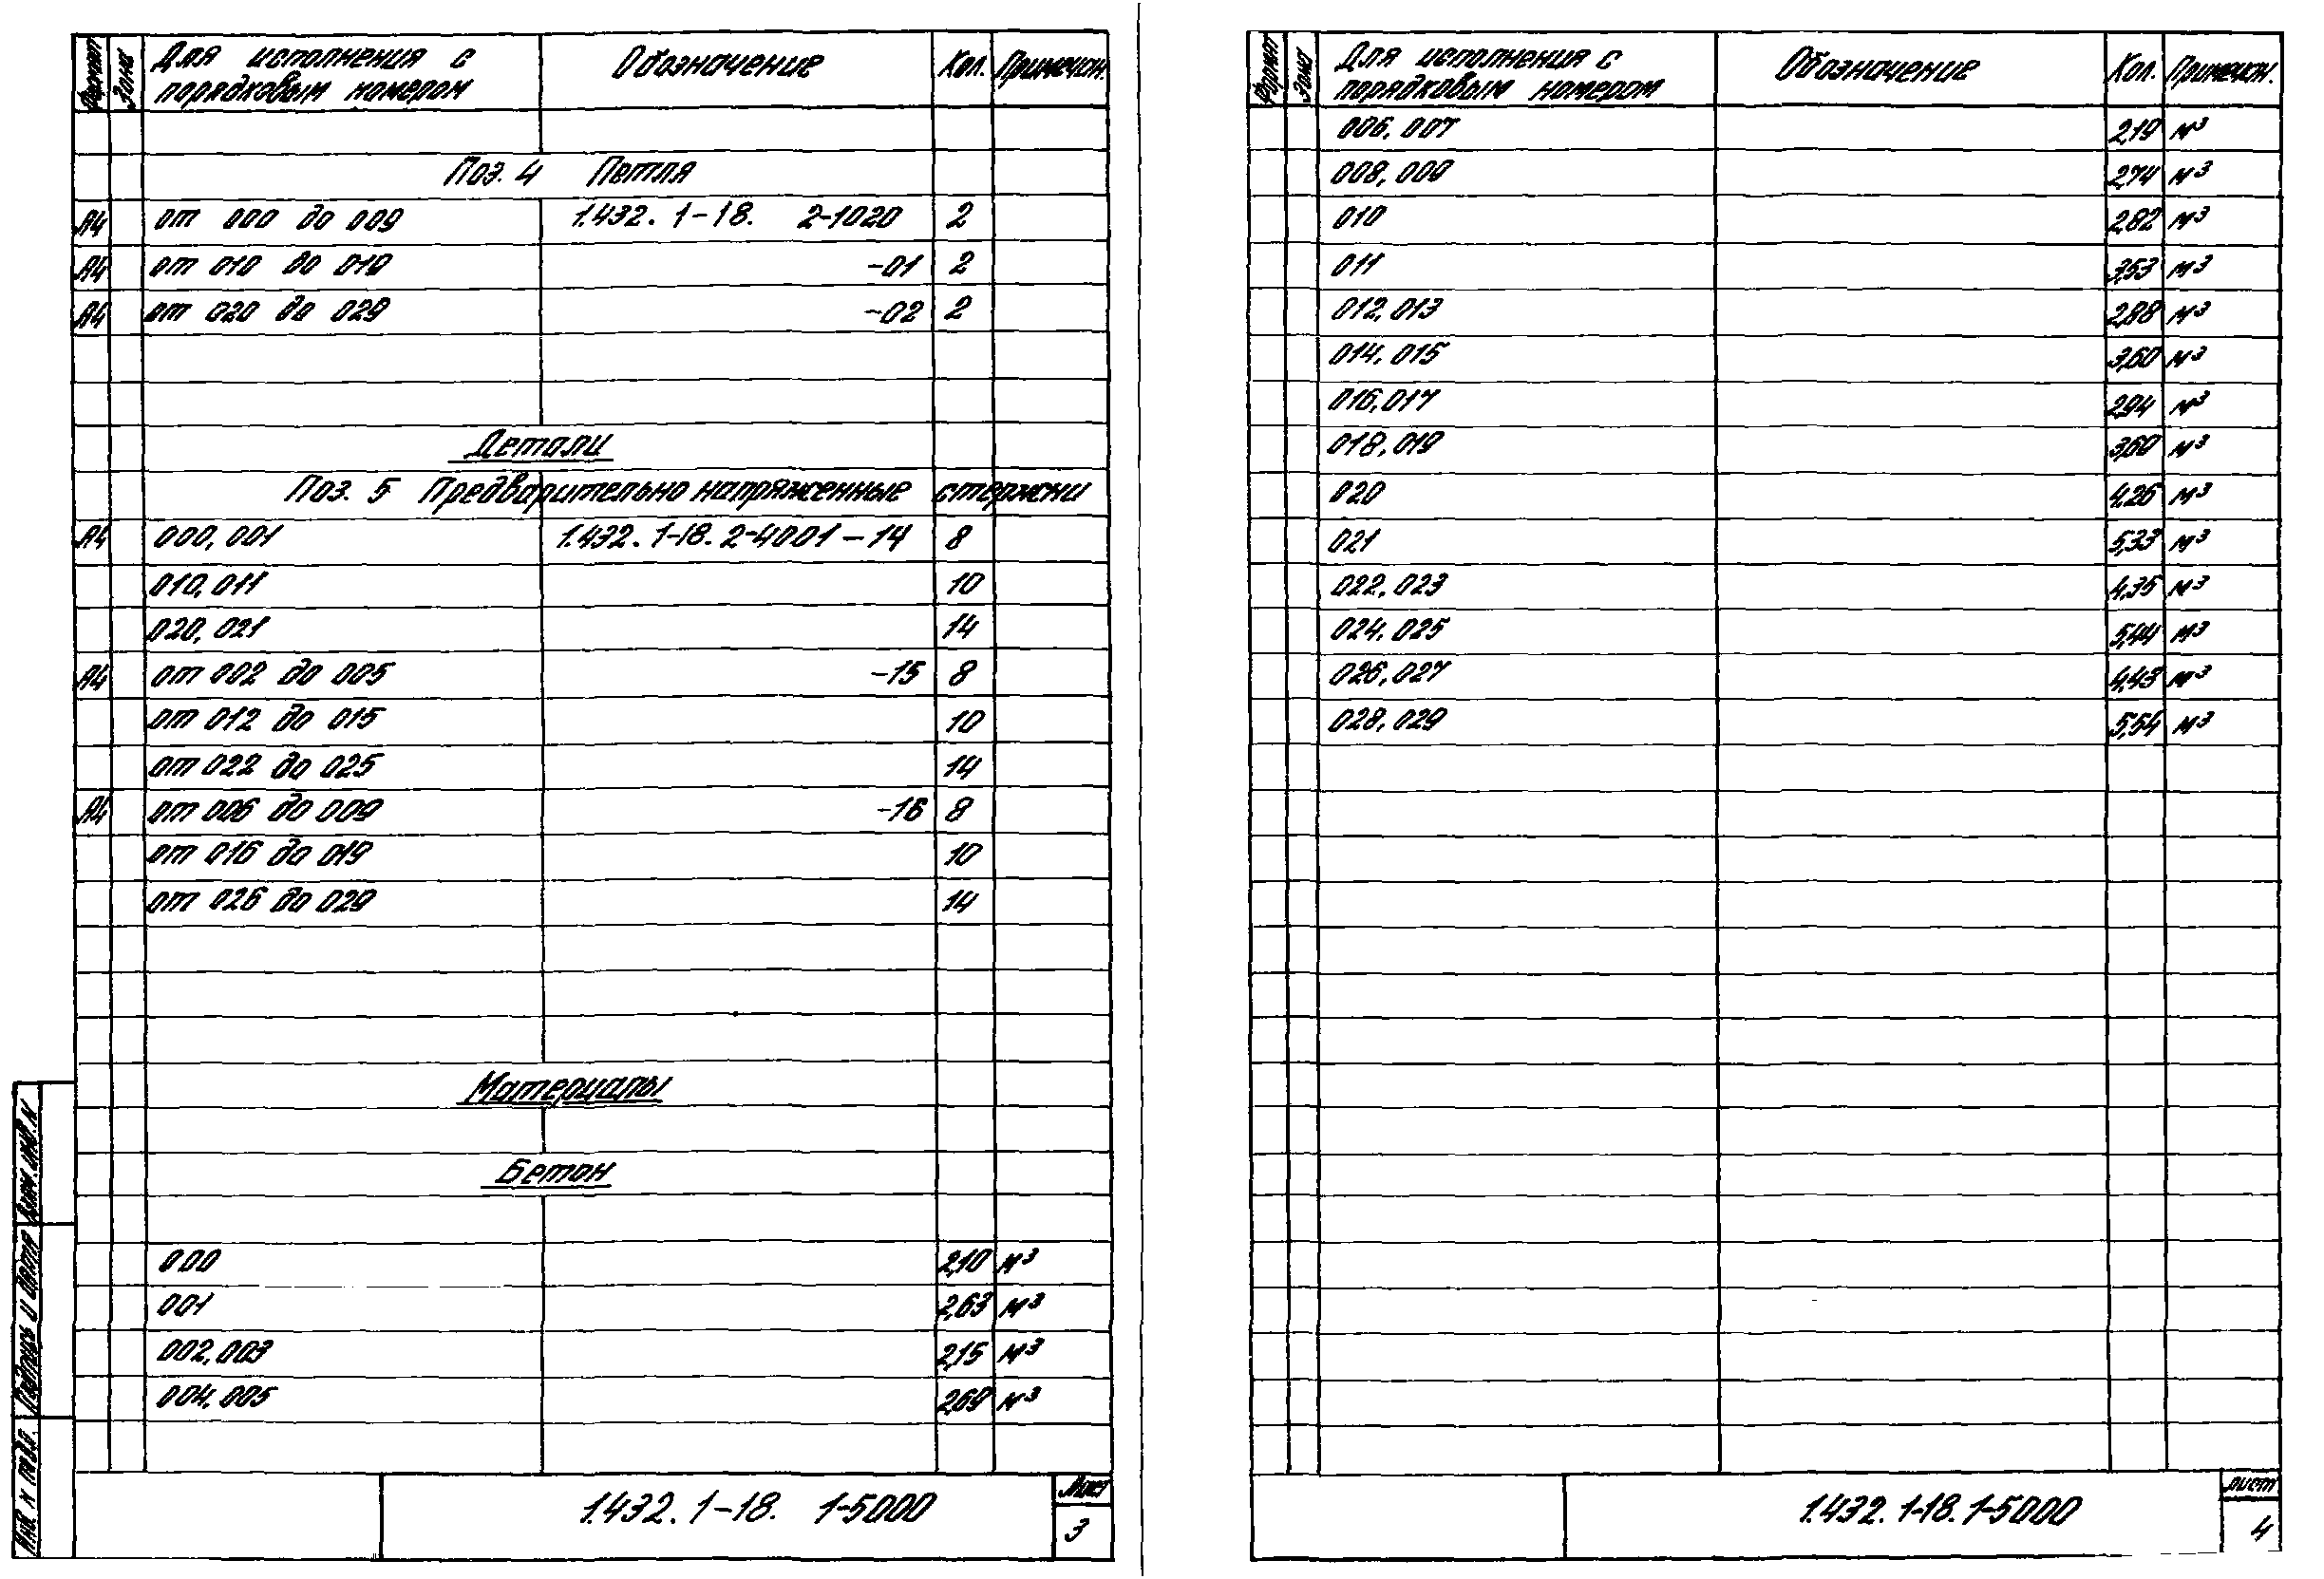 Формат Зона Для исполнения с порядковым номером Обозначение Кол. Примечан.
Поз. 4 Петля
А4 от 000 до 009 1.432.1-18. 2-1020 2
А4 от 010 до 019 -01 2
А4 от 020 до 029 -02 2
Детали
Поз. 5 Предварительно напряженные стержни
А4 000, 001 1.432.1-18.2-4001-14 8
010, 011 10
020, 021 14
А4 от 002 до 005 -15 8
от 012 до 015 10
от 022 до 025 14
А4 от 006 до 009 -16 8
от 016 до 019 10
от 026 до 029 14
Материалы
Бетон
000 2,10 м³
001 2,63 м³
002,003 2,15 м³
004,005 2,69 м³
Инв. N подл. Подпись и дата Взам. инв. N
1.432.1-18. 1-5000
Лист
3
Формат Зона Для исполнения с порядковым номером Обозначение Кол. Примечан.
006, 007 2,19 м³
008, 009 2,74 м³
010 2,82 м³
011 3,53 м³
012, 013 2,88 м³
014, 015 3,60 м³
016, 017 2,94 м³
018, 019 3,60 м³
020 4,26 м³
021 5,33 м³
022, 023 4,35 м³
024, 025 5,44 м³
026, 027 4,43 м³
028, 029 5,54 м³
1.432.1-18.1-5000
Лист
4